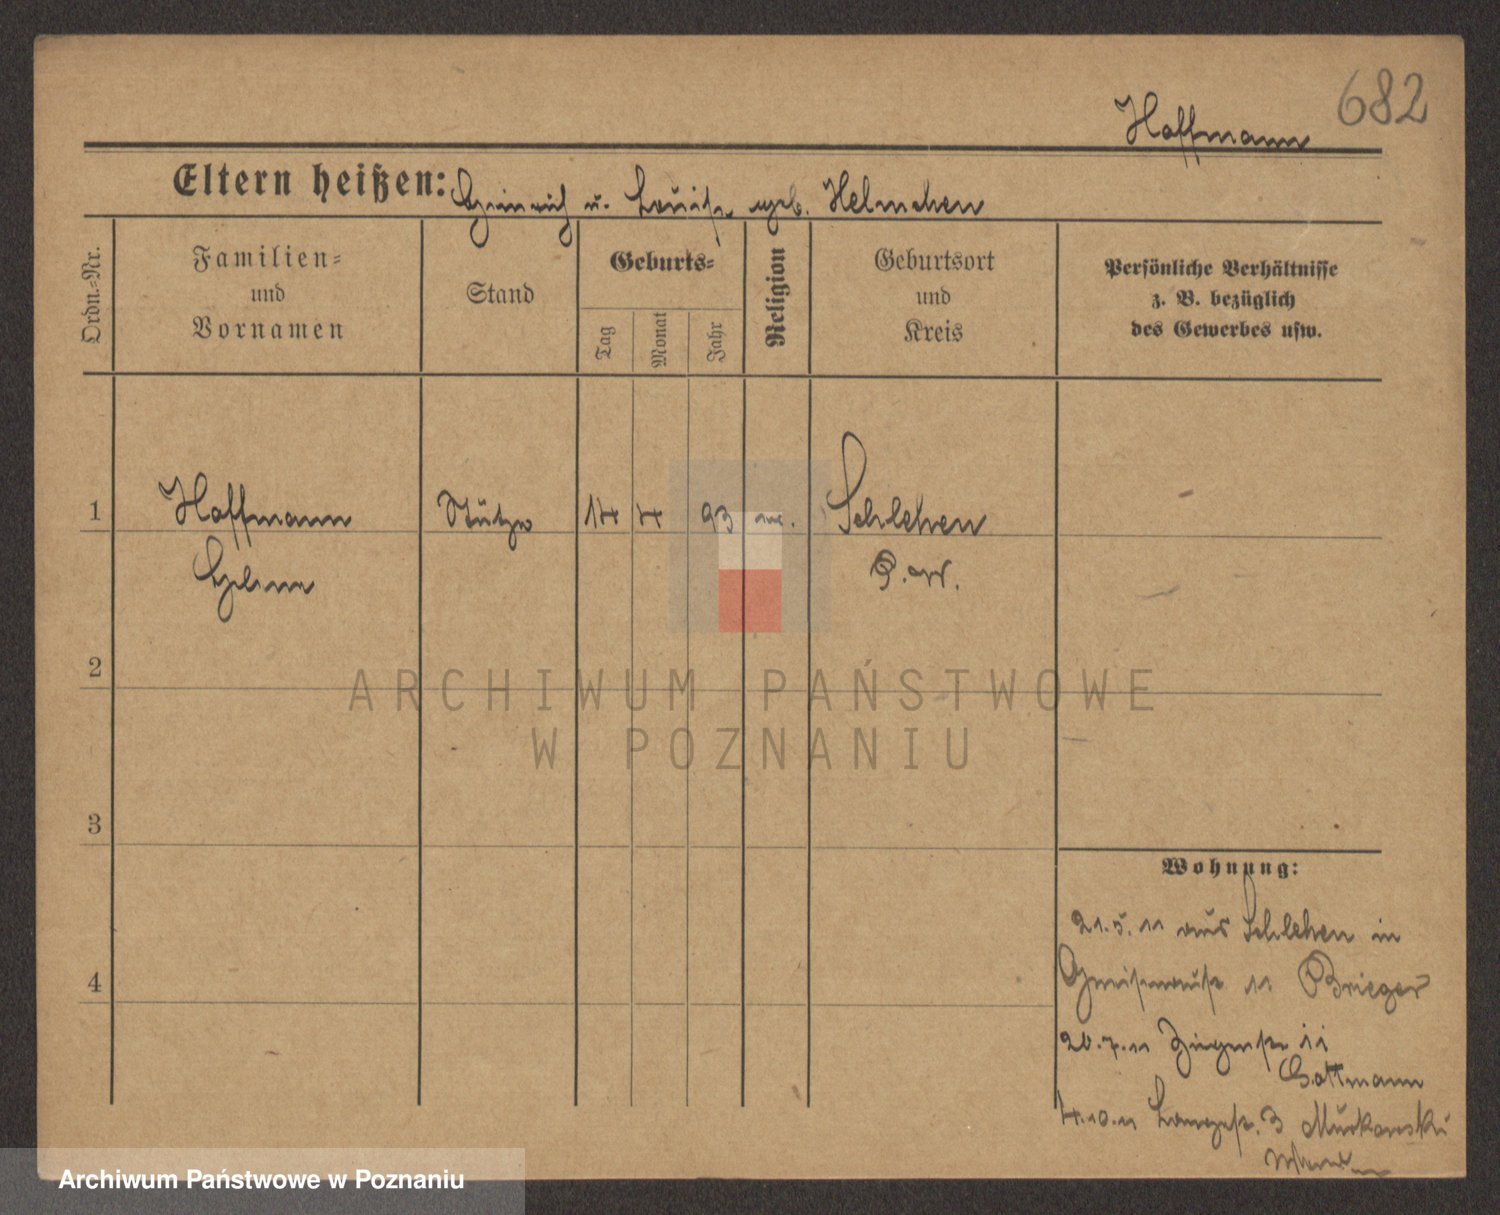 682
Hoffmann
Eltern heißen: Heinrich u. Louise geb. Helmchen
Ordn.-Nr.
Familien-
und
Vornamen
Stand
Geburts-
Tag
Monat
Jahr
Religion
Geburtsort
und
Kreis
Persönliche Verhältnisse
z. B. bezüglich
des Gewerbes usw.
1 Hoffmann Stütze 14 4 93 Schlehen
P. W.
2
3
4
Wohnung:
21.5.11 aus Schlehen in
Gneisenaustr 11 Brieger
20.7.11 11
Gottmann
4.10.11 Langestr. 3
ARCHIWUM PAŃSTWOWE
W POZNANIU
Archiwum Państwowe w Poznaniu